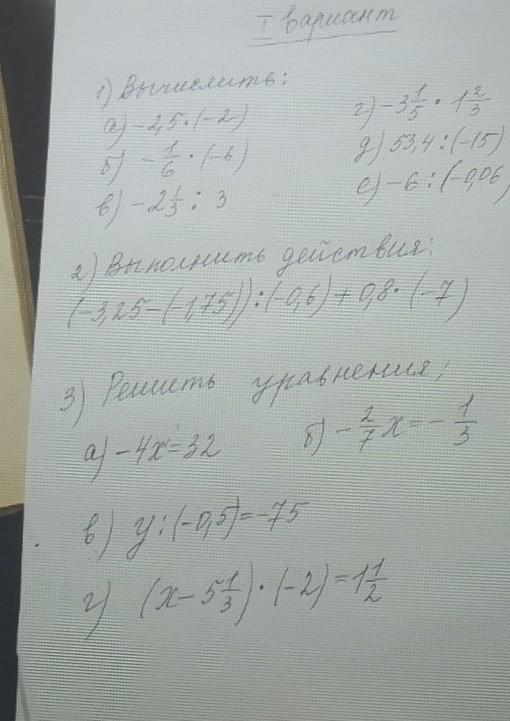 I вариант
1) Вычислить:
а) -2,5 · (-2)
б) - 1/6 · (-6)
в) -2 1/3 : 3
г) -3 1/5 · 1 2/3
д) 53,4 : (-15)
е) -6 : (-0,06)
2) Выполнить действия:
(-3,25-(-1,75)) : (-0,6) + 0,8 · (-7)
3) Решить уравнения;
а) -4x=32
б) - 2/7 x = - 1/3
в) y : (-0,5) = -75
г) (x - 5 1/3) · (-2) = 1 1/2